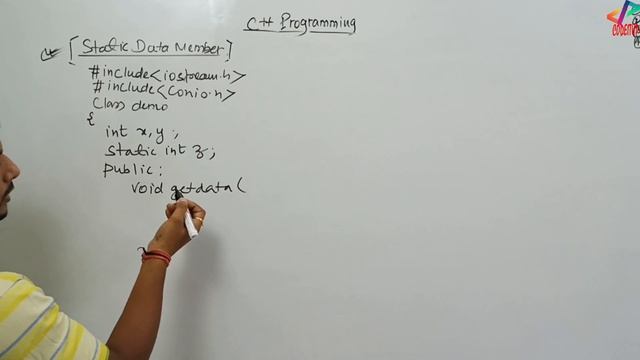 C++ Programming
[Static Data Member]
#include<iostream.h>
#include<conio.h>
Class demo
{
int x,y;
static int z;
public:
void getdata(